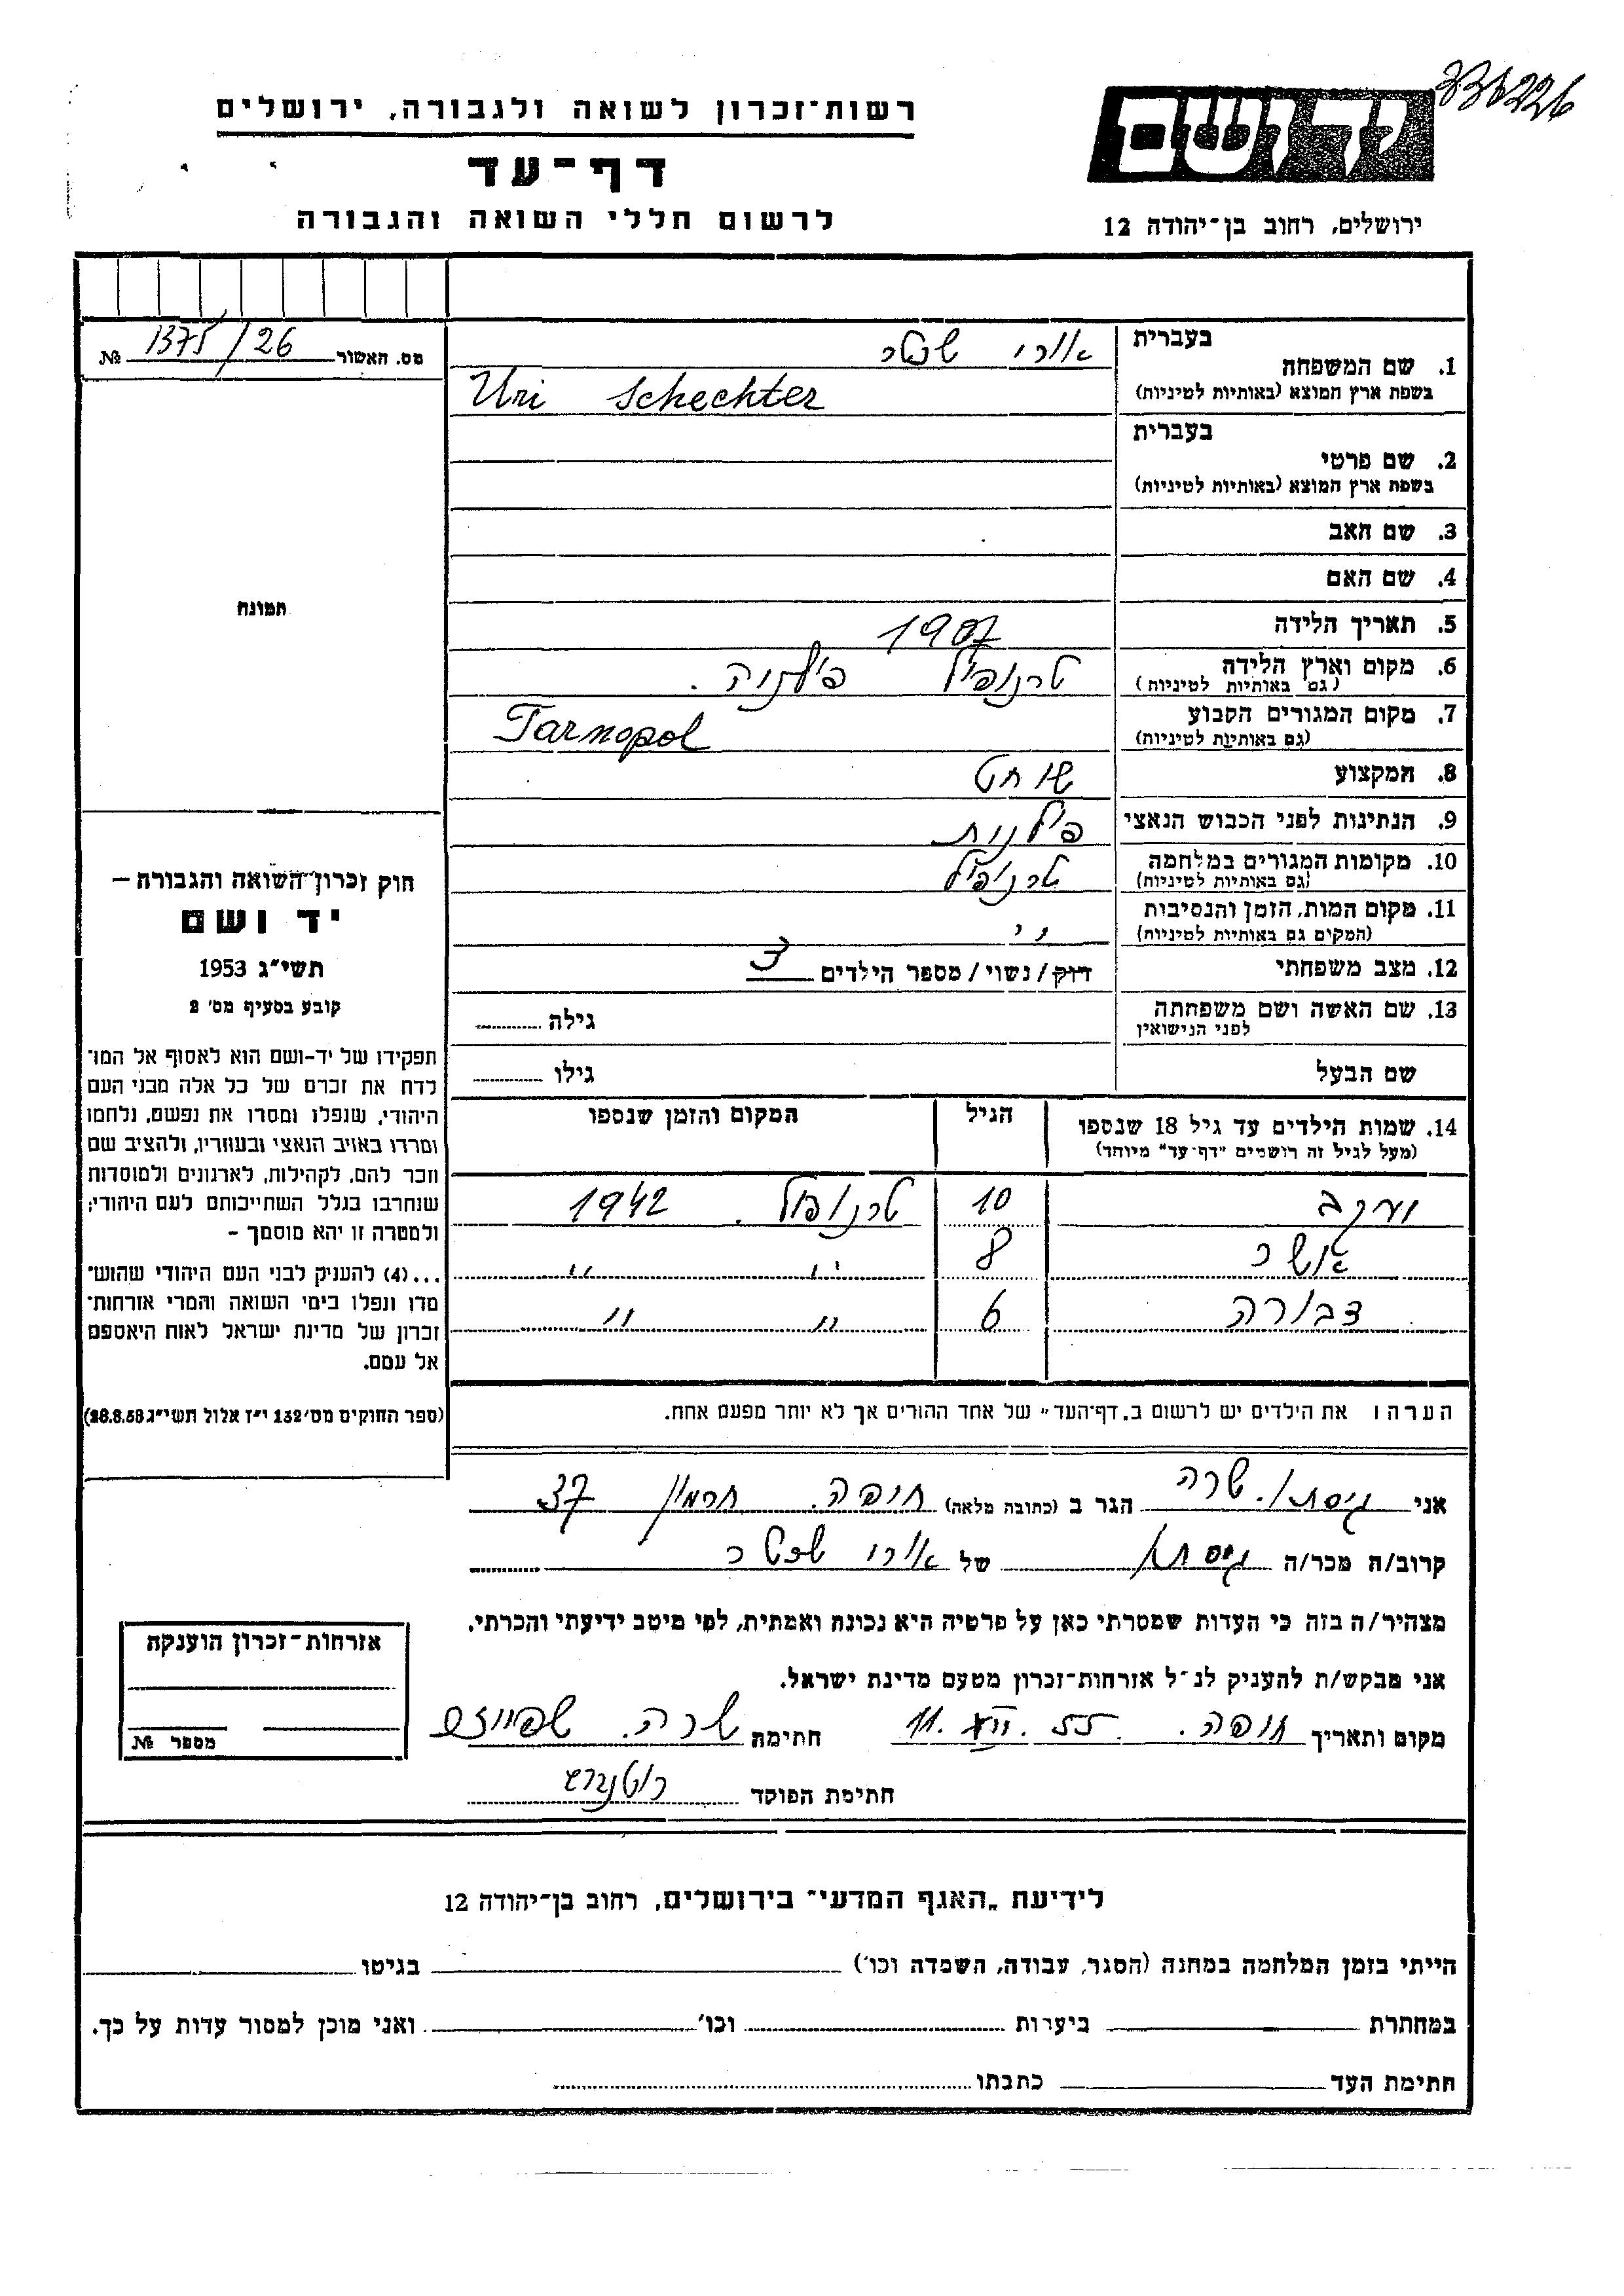 רשות־זכרון לשואה ולגבורה, ירושלים
דף־עד
לרשום חללי השואה והגבורה
יד ושם
ירושלים, רחוב בן־יהודה 12
מס. האשור 1375/26 №
1. שם המשפחה
בעברית
אורי שכטר
בשפת ארץ המוצא (באותיות לטיניות)
Uri Schechter
2. שם פרטי
בעברית
בשפת ארץ המוצא (באותיות לטיניות)
3. שם האב
4. שם האם
5. תאריך הלידה 1907
6. מקום וארץ הלידה טרנופיל פולניה.
(גם באותיות לטיניות)
7. מקום המגורים הקבוע Tarnopol
(גם באותיות לטיניות)
8. המקצוע שוחט
9. הנתינות לפני הכבוש הנאצי פולנית
10. מקומות המגורים במלחמה טרנופיל
(גם באותיות לטיניות)
11. מקום המות, הזמן והנסיבות ״
(המקום גם באותיות לטיניות)
12. מצב משפחתי רוק/נשוי/מספר הילדים 3
13. שם האשה ושם משפחתה גילה
לפני הנישואין
שם הבעל גילו
14. שמות הילדים עד גיל 18 שנספו הגיל המקום והזמן שנספו
(מעל לגיל זה רושמים "דף־עד" מיוחד)
יעקב 10 טרנופול. 1942
אשר 8 ״ ״
דבורה 6 ״ ״
הערה: את הילדים יש לרשום ב„דף־העד" של אחד ההורים אך לא יותר מפעם אחת.
תמונה
חוק זכרון השואה והגבורה —
יד ושם
תשי״ג 1953
קובע בסעיף מס׳ 2
תפקידו של יד-ושם הוא לאסוף אל המו־
לדת את זכרם של כל אלה מבני העם
היהודי, שנפלו ומסרו את נפשם, נלחמו
ומרדו באויב הנאצי ובעוזריו, ולהציב שם
וזכר להם, לקהילות, לארגונים ולמוסדות
שנחרבו בגלל השתייכותם לעם היהודי;
ולמטרה זו יהא מוסמך –
...(4) להעניק לבני העם היהודי שהוש־
מדו ונפלו בימי השואה והמרי אזרחות־
זכרון של מדינת ישראל לאות היאספם
אל עמם.
(ספר החוקים מס׳ 132 י״ז אלול תשי״ג 28.8.53)
אני גיסתו. שרה הגר ב (כתובת מלאה) חיפה. חרמון 37
קרוב/ה מכר/ה גיסתו של אורי שכטר
מצהיר/ה בזה כי העדות שמסרתי כאן על פרטיה היא נכונה ואמתית, לפי מיטב ידיעתי והכרתי.
אני מבקש/ת להעניק לנ״ל אזרחות־זכרון מטעם מדינת ישראל.
מקום ותאריך חיפה. 11. 55. חתימת שרה.
חתימת הפוקד
אזרחות־זכרון הוענקה
מספר №
לידיעת „האגף המדעי" בירושלים, רחוב בן־יהודה 12
הייתי בזמן המלחמה במחנה (הסגר, עבודה, השמדה וכו׳) בגיטו
במחתרת ביערות וכו׳ ואני מוכן למסור עדות על כך.
חתימת העד כתבתו